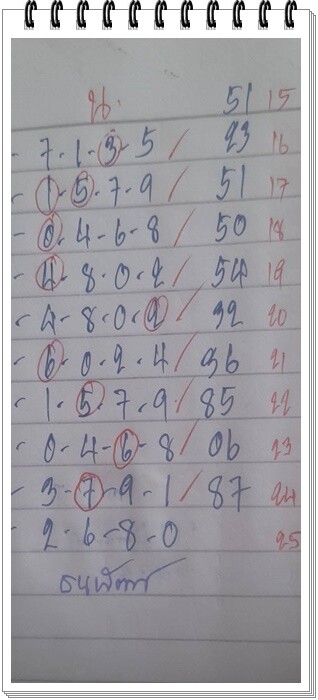 น. 51 15
- 7-1-3-5 / 23 16
- 1-5-7-9 / 51 17
- 0-4-6-8 / 50 18
- 4-8-0-2 / 54 19
- 4-8-0-2 / 32 20
- 6-0-2-4 / 36 21
- 1-5-7-9 / 85 22
- 0-4-6-8 / 06 23
- 3-7-9-1 / 87 24
- 2-6-8-0 25